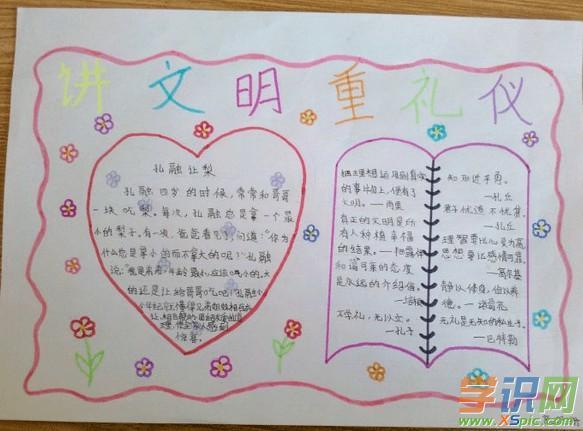 讲文明重礼仪
孔融让梨
孔融四岁的时候,常常和哥哥
一块吃梨。每次,孔融总是拿一个最
小的梨子。有一次,爸爸看见了,问道:“你为
什么总是拿小的而不拿大的呢?”孔融
说:“我是弟弟,年龄最小,应该吃小的,大
的还是让给哥哥吃吧!”孔融小
惊喜。
的事业上,便有了
文明。—雨果
真正的文明是所
有人种植幸福
的结果。
和蔼可亲的态度
是永远的介绍信。
不学礼,无以立。
—孔子
知耻近乎勇。
—孔丘
君子忧道不忧贫。
—孔丘
理智要比心灵为高,
思想要比感情可靠。
—高尔基
静以修身,俭以养
德。—诸葛亮
无礼是无知的私生子。
—巴特勒
学识网
www.XSpic.com